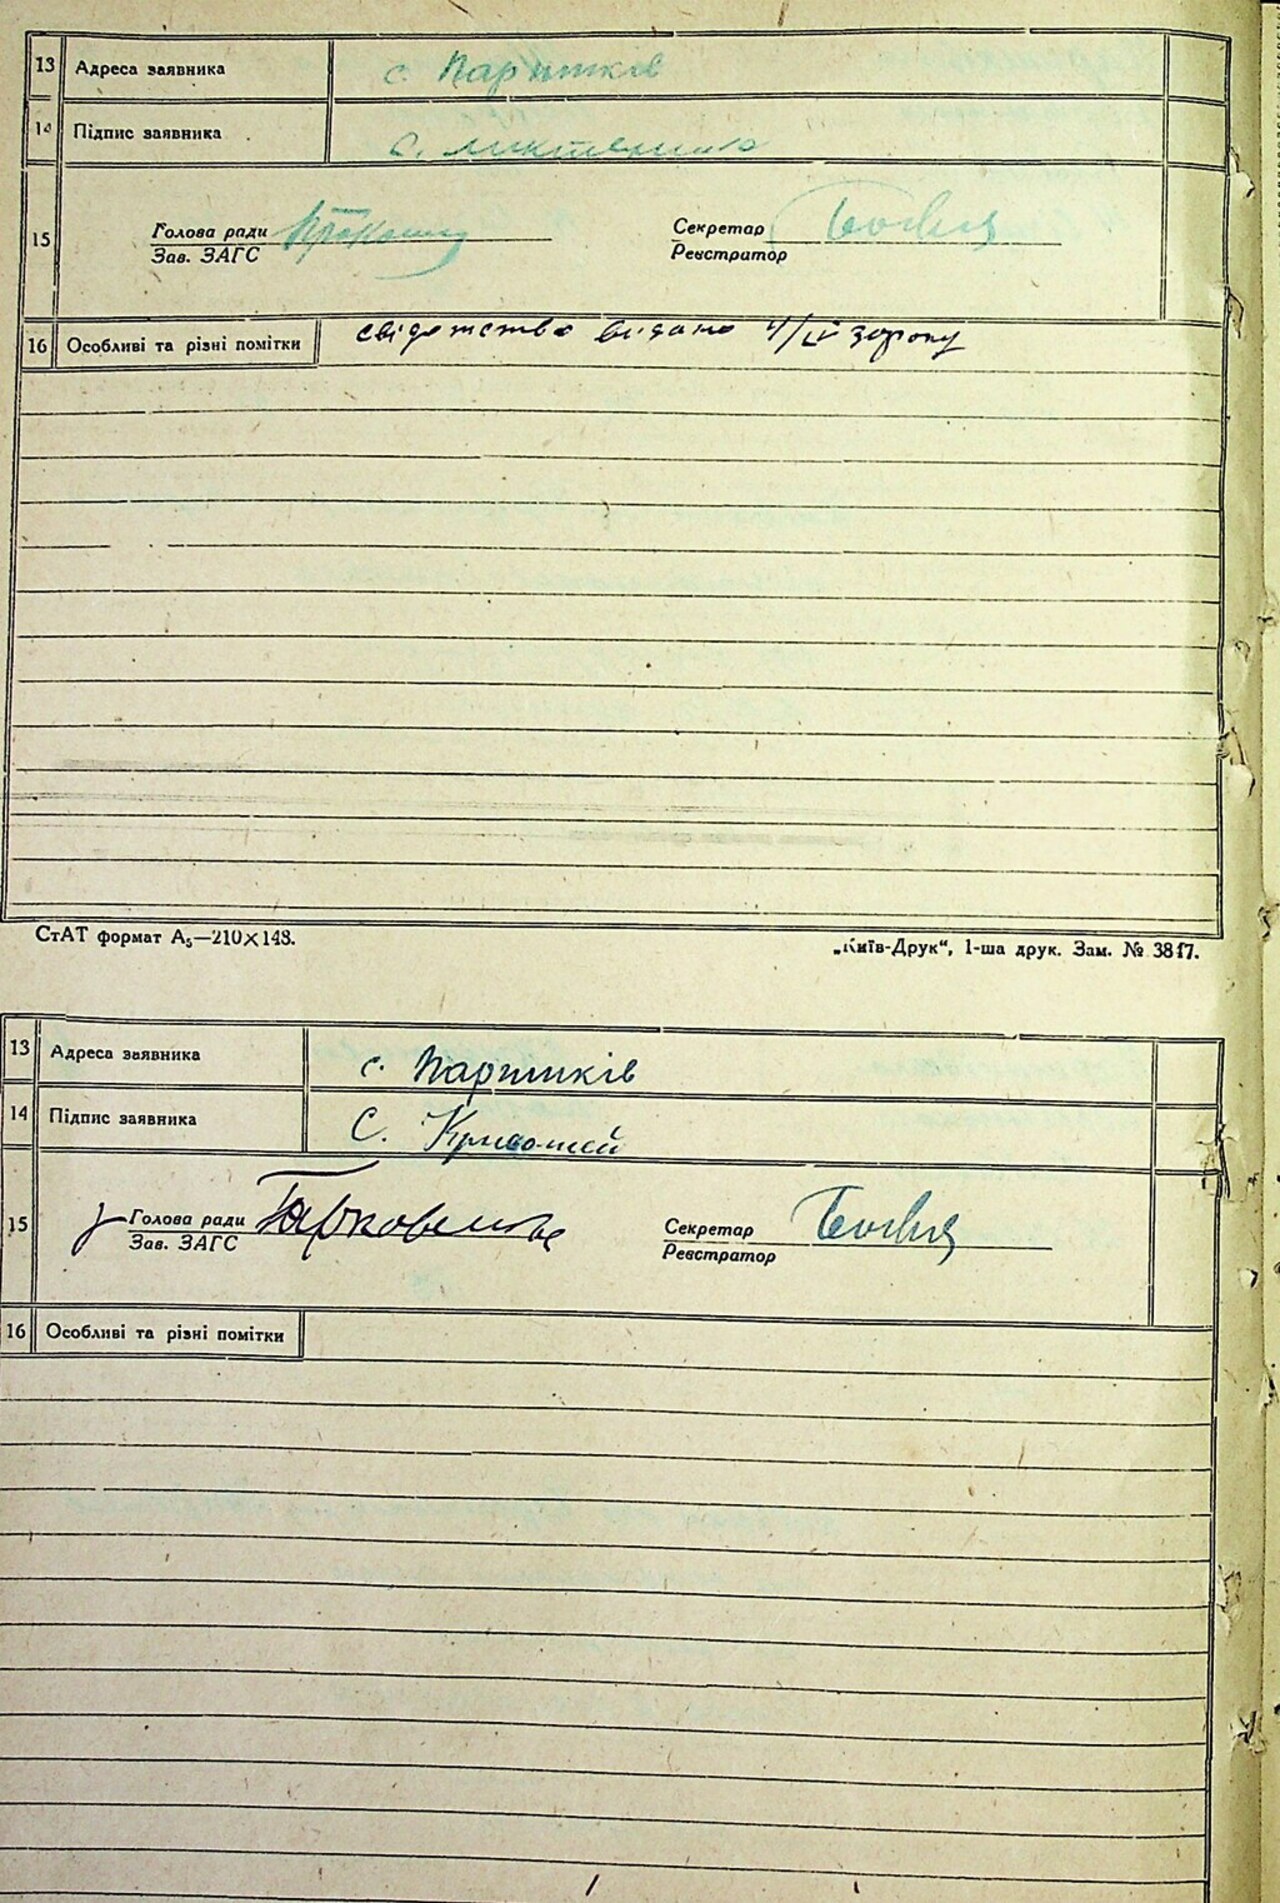 13 Адреса заявника с. Паришків
14 Підпис заявника С.
Голова ради Секретар
15
Зав. ЗАГС Реєстратор
16 Особливі та різні помітки свідетство видано 4/IV
СтАТ формат А₅—210×148. „Київ-Друк“, 1-ша друк. Зам. № 3817.
13 Адреса заявника с. Паришків
14 Підпис заявника С. Кривошей
Голова ради Секретар
15
Зав. ЗАГС Реєстратор
16 Особливі та різні помітки